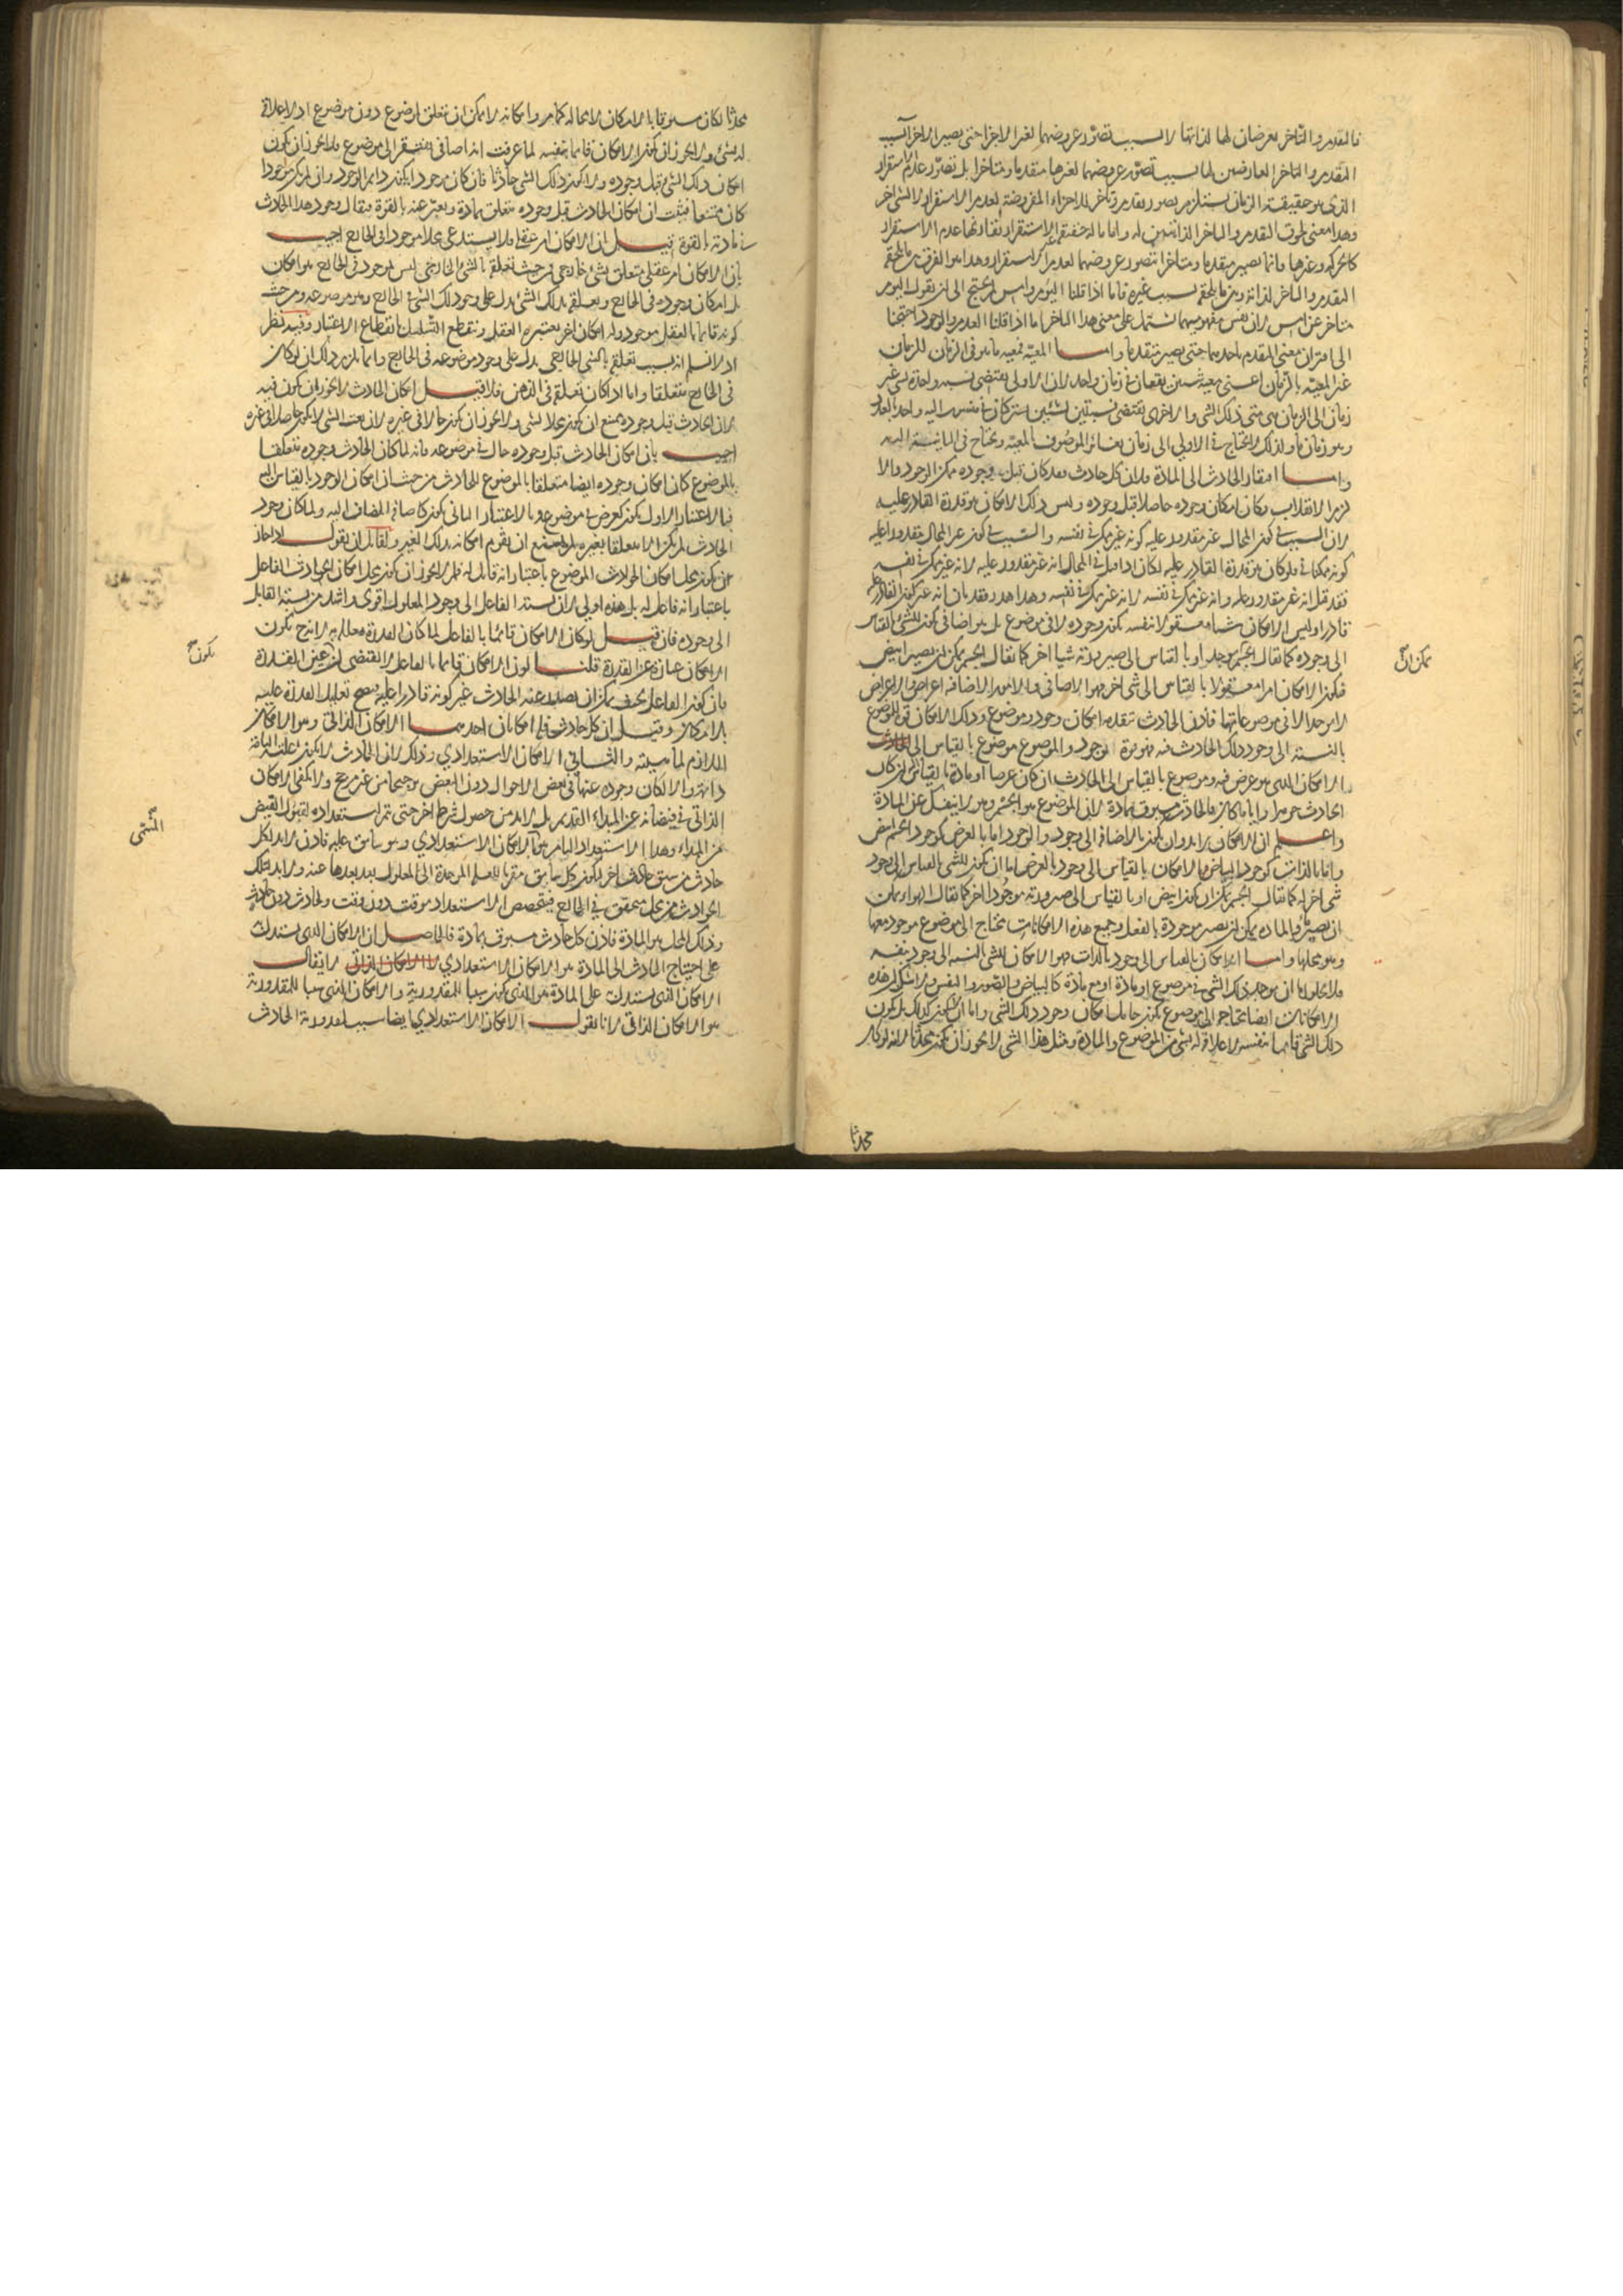 فالتقدم والتأخر يعرضان لها لذاتها لا بسبب تصور عروضهما لغير الاجزا حتى يصير الاجزا بسبب
التقدم والتاخر العارضين لها بسبب تصور عروضهما لغيرها متقدما ومتاخرا بل تصور عدم استقرار
الذى هو حقيقة الزمان يستلزم تصور تقدم وتأخر للاجزاء المفروضة لعدم الاستقرار لا لشئ اخر
وهذا معنى لحوق التقدم والتاخر الذاتيين له واما ما له حقيقة غير الاستقرار يقارنها عدم الاستقرار
كالحركة وغيرها فانما يصير متقدما ومتاخرا بتصور عروضهما لعدم الاستقرار وهذا هو الفرق بين ما يلحقه
التقدم والتاخر لذاته وبين ما يلحقه بسبب غيره فانا اذا قلنا اليوم وامس لم نحتج الى ان نقول اليوم
متاخر عن امس لان نفس مفهوميهما يشتمل على معنى هذا التاخر اما اذا قلنا العدم والوجود احتجنا
الى اقتران معنى التقدم باحدهما حتى يصير متقدما واما المعية فمعية ما هو فى الزمان للزمان
غير المعية بالزمان اعنى معية شيئين يقعان فى زمان واحد لان الاولى يقتضى نسبة واحدة لشئ غير
زمان الى الزمان هى متى ذلك الشى والاخرى يقتضى نسبتين لشيئين يشتركان فى منسوب اليه واحد بالعدد
وهو زمان ما ولذلك لا يحتاج فى الاولى الى زمان يغاير الموصوف بالمعية ويحتاج فى الثانية اليه
واما افتقار الحادث الى المادة فلان كل حادث فقد كان قبل وجوده ممكن الوجود والا
لزم الانقلاب فكان امكان وجوده حاصلا قبل وجوده وليس ذلك الامكان هو قدرة القادر عليه
لان السبب فى كون المحال غير مقدور عليه كونه غير ممكن فى نفسه والسبب فى كون غير المحال مقدورا عليه
كونه ممكنا فى نفسه فلو كان هو قدرة القادر عليه لكان اذا قيل فى المحال انه غير مقدور عليه لانه غير ممكن فى نفسه
فقد قيل انه غير مقدور عليه وانه غير ممكن فى نفسه لانه غير ممكن فى نفسه وهذا هدر وقد بان انه غير كون القادر
قادرا وليس الامكان شيئا معقولا بنفسه يكون وجوده لا فى موضوع بل هو اضافى يكون للشئ بالقياس
الى وجوده كما يقال الجسم يوجد او بالقياس الى صيرورته شيا اخر كما يقال الجسم يمكن ان يصير ابيض
فيكون الامكان امرا معقولا بالقياس الى شى اخر فهو الاضافى والامور الاضافية اعراض والاعراض
لا توجد الا فى موضوعاتها فاذن الحادث يتقدمه امكان وجود وموضوع وذلك الامكان قوة للموضوع
بالنسبة الى وجود ذلك الحادث فيه فهو قوة وجود والموضوع موضوع بالقياس الى
الامكان الذى هو عرض فيه وموضوع بالقياس الى الحادث ان كان عرضا او مادة بالقياس اليه ان كان
الحادث جوهرا وايا ما كان فالحادث مسبوق بمادة لان الموضوع هو الجسم وهو لا ينفك عن المادة
واعلم ان الامكان لا بد وان يكون بالاضافة الى وجود والوجود اما بالعرض كوجود الجسم ابيض
واما بالذات كوجود البياض والامكان بالقياس الى وجود بالعرض اما ان يكون للشى بالقياس الى وجود
شى اخر له كما يقال الجسم يمكن ان يكون ابيض او بالقياس الى صيرورته موجودا اخر كما يقال الهواء يمكن
ان يصير ماء والمادة يمكن ان يصير موجودة بالفعل وجميع هذه الامكانات يحتاج الى موضوع موجود معها
وهو محلها واما الامكان بالقياس الى وجود بالذات فهو الامكان للشى بالنسبة الى وجود نفسه
فلا يخلو اما ان يوجد ذلك الشى فى موضوع او مادة او مع مادة كالبياض والصورة والنفس ولا شك ان هذه
الامكانات ايضا يحتاج الى موضوع يكون حامل امكان وجود ذلك الشى واما ان لا يكون كذلك بل يكون
ذلك الشى قائما بنفسه لا علاقة له بشى من الموضوع والمادة ومثل هذا الشى لا يجوز ان يكون محدثا لانه لو كان
يمكن ان
محدثا
محدثا لكان مسبوقا بالامكان لا محالة كما مر وامكانه لا يمكن ان يتعلق بموضوع دون موضوع اذ لا علاقة
له بشئ ولا يجوز ان يكون الامكان قائما بنفسه لما عرفت انه اضافى مفتقر الى موضوع فلا يجوز ان يكون
امكان ذلك الشى قبل وجوده ولا يكون ذلك الشى حادثا فان كان موجودا يكون دايم الوجود وان لم يكن موجودا
كان ممتنعا فثبت ان امكان الحادث قبل وجوده متعلق بمادة ويعبر عنه بالقوة فيقال وجود هذا الحادث
فى مادته بالقوة قيل ان الامكان امر عقلى فلا يستدعى محلا موجودا فى الخارج اجيب
بان الامكان امر عقلى متعلق بشئ خارجى فمن حيث تعلقه بالشئ الخارجى ليس بموجود فى الخارج هو امكان
بل امكان وجوده فى الخارج ويعلقه بذلك الشئ يدل على وجود ذلك الشئ فى الخارج وهو موضوعه ومن حيث
كونه قائما بالعقل موجود وله امكان اخر يعتبره العقل وينقطع التسلسل بانقطاع الاعتبار وفيه نظر
اذ لا نسلم انه بسبب تعلقه بالشى الخارجى يدل على وجود موضوعه فى الخارج وانما يلزم ذلك ان لو كان
فى الخارج متعلقا واما اذا كان تعلقه فى الذهن فلا قيل امكان الحادث لا يجوز ان يكون فيه
لان الحادث قبل وجوده يمتنع ان يكون محلا لشئ ولا يجوز ان يكون حالا فى غيره لان نعت الشى لا يكون حاصلا فى غيره
اجيب بان امكان الحادث قبل وجوده حال فى موضوعه فانه لما كان الحادث وجوده متعلقا
بالموضوع كان امكان وجوده ايضا متعلقا بالموضوع الحادث من حيث ان امكان الوجود بالقياس اليه
فبالاعتبار الاول يكون كعرض فى موضوع وبالاعتبار الثانى يكون كاضافة المضاف اليه ولما كان وجود
الحادث لم يكن الا متعلقا بغيره لم يمتنع ان يقوم امكانه بذلك الغير ولقائل ان يقول اذا جاز
ان يكون محل امكان الحوادث الموضوع باعتبار انه قابل له فلم لا يجوز ان يكون محل امكان الحوادث الفاعل
باعتبار انه فاعل له بل هذه اولى لان نسبة الفاعل الى وجود المعلول اقوى واشد من نسبة القابل
الى وجوده فان قيل لو كان الامكان قائما بالفاعل لما كان القدرة معللة به لانه ح يكون
الامكان عبارة عن القدرة قلنا كون الامكان قائما بالفاعل لا يقتضى ان يكون عين القدرة
فان كون الفاعل بحيث يمكن ان يصدر عنه الحادث غير كونه قادرا عليه فيصح تعليل القدرة عليه
بالامكان وقيل ان كل حادث فله امكانان احدهما الامكان الذاتى وهو الامكان
اللازم لماهيته والثانى الامكان الاستعدادي وذلك لان الحادث لا يكون علته التامة
دائمة والا لكان وجوده عنها فى بعض الاحوال دون البعض ترجيحا من غير مرجح ولا يكفى الامكان
الذاتى فى فيضانه عن المبداء القديم بل لا بد من حصول شرط اخر حتى يتم استعداده لقبول الفيض
من المبداء وهذا الاستعداد التام هو الامكان الاستعدادي وهو سابق عليه فاذن لا بد لكل
حادث من سبق حادث اخر ليكون كل سابق مقربا للعلة الموجدة الى المعلول بعد بعدها عنه ولا بد لتلك
الحوادث من محل متحقق فى الخارج فيتخصص الاستعداد بوقت دون وقت ولحادث دون حادث
وذلك المحل هو المادة فاذن كل حادث مسبوق بمادة فالحاصل ان الامكان الذى يستدل
على احتياج الحادث الى المادة هو الامكان الاستعدادي لا الامكان الذاتى لا يقال
الامكان الذى يستدل على المادة هو الذى يكون سببا للمقدورية والامكان الذى سببا للمقدورية
هو الامكان الذاتى لانا نقول الامكان الاستعدادي ايضا سبب لمقدورية الحادث
يكون
المسمى